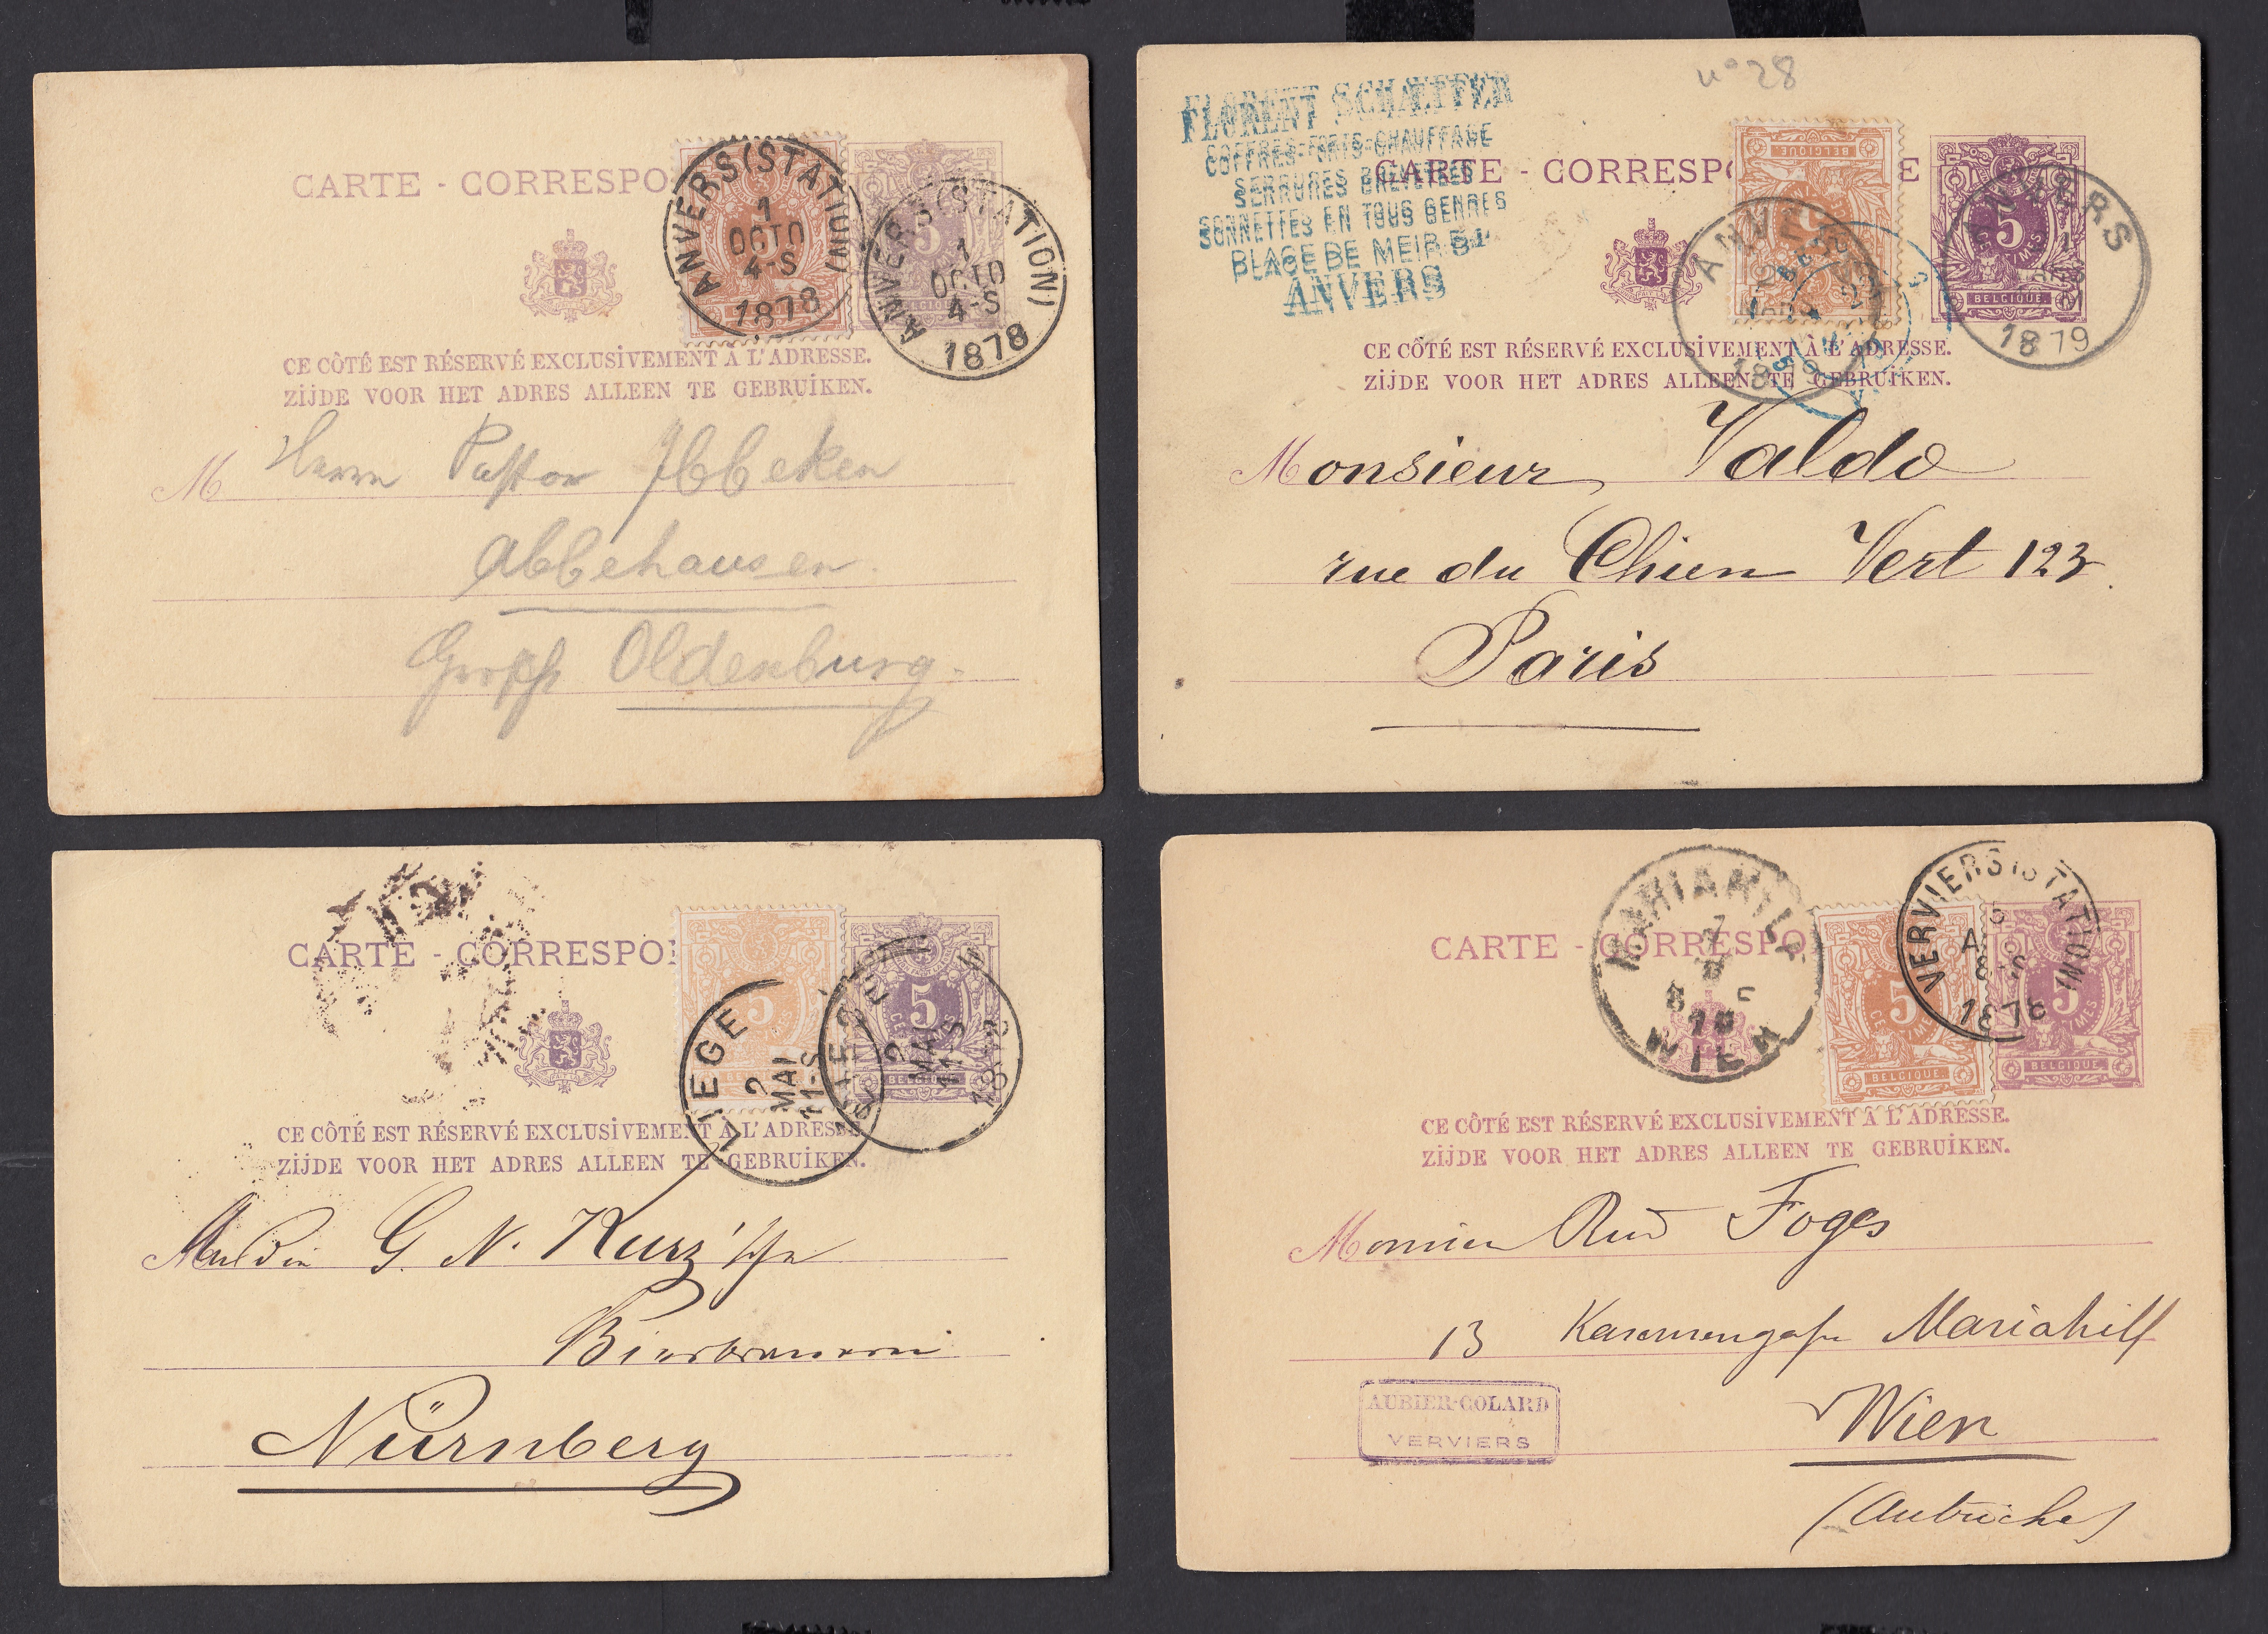 CARTE - CORRESPO
5
ANVERS (STATION)
1
OCTO
4-S
1878
ANVERS (STATION)
1
OCTO
4-S
1878
CE CÔTÉ EST RÉSERVÉ EXCLUSIVEMENT À L'ADRESSE.
ZIJDE VOOR HET ADRES ALLEEN TE GEBRUIKEN.
M Herrn Pastor Ibbeken
Abbehausen.
Oldenburg.
n° 28
FLORENT SCHÆFFER
COFFRES-FORTS-CHAUFFAGE
SERRURES BREVETÉES
SONNETTES EN TOUS GENRES
PLACE DE MEIR
ANVERS
CARTE - CORRESP E
BELGIQUE
5
BELGIQUE
ANVERS
1879
ANVERS
1879
CE CÔTÉ EST RÉSERVÉ EXCLUSIVEMENT À L'ADRESSE.
ZIJDE VOOR HET ADRES ALLEEN TE GEBRUIKEN.
Monsieur Valdo
rue du Chien Vert 123
Paris
CARTE - CORRESPO
5
5
LIEGE
2
MAI
11-S
2
MAI
11-S
CE CÔTÉ EST RÉSERVÉ EXCLUSIVEMENT À L'ADRESSE.
ZIJDE VOOR HET ADRES ALLEEN TE GEBRUIKEN.
G. N. Kurz'sche
Bierbrauerei
Nürnberg
CARTE - CORRESPO
MARIAHILF
WIEN
5
BELGIQUE
5
BELGIQUE
VERVIERS (STATION)
1878
CE CÔTÉ EST RÉSERVÉ EXCLUSIVEMENT À L'ADRESSE.
ZIJDE VOOR HET ADRES ALLEEN TE GEBRUIKEN.
Monsieur Rud Foges
13 Mariahilf
AUBIER-COLARD
VERVIERS
Wien
(Autriche)